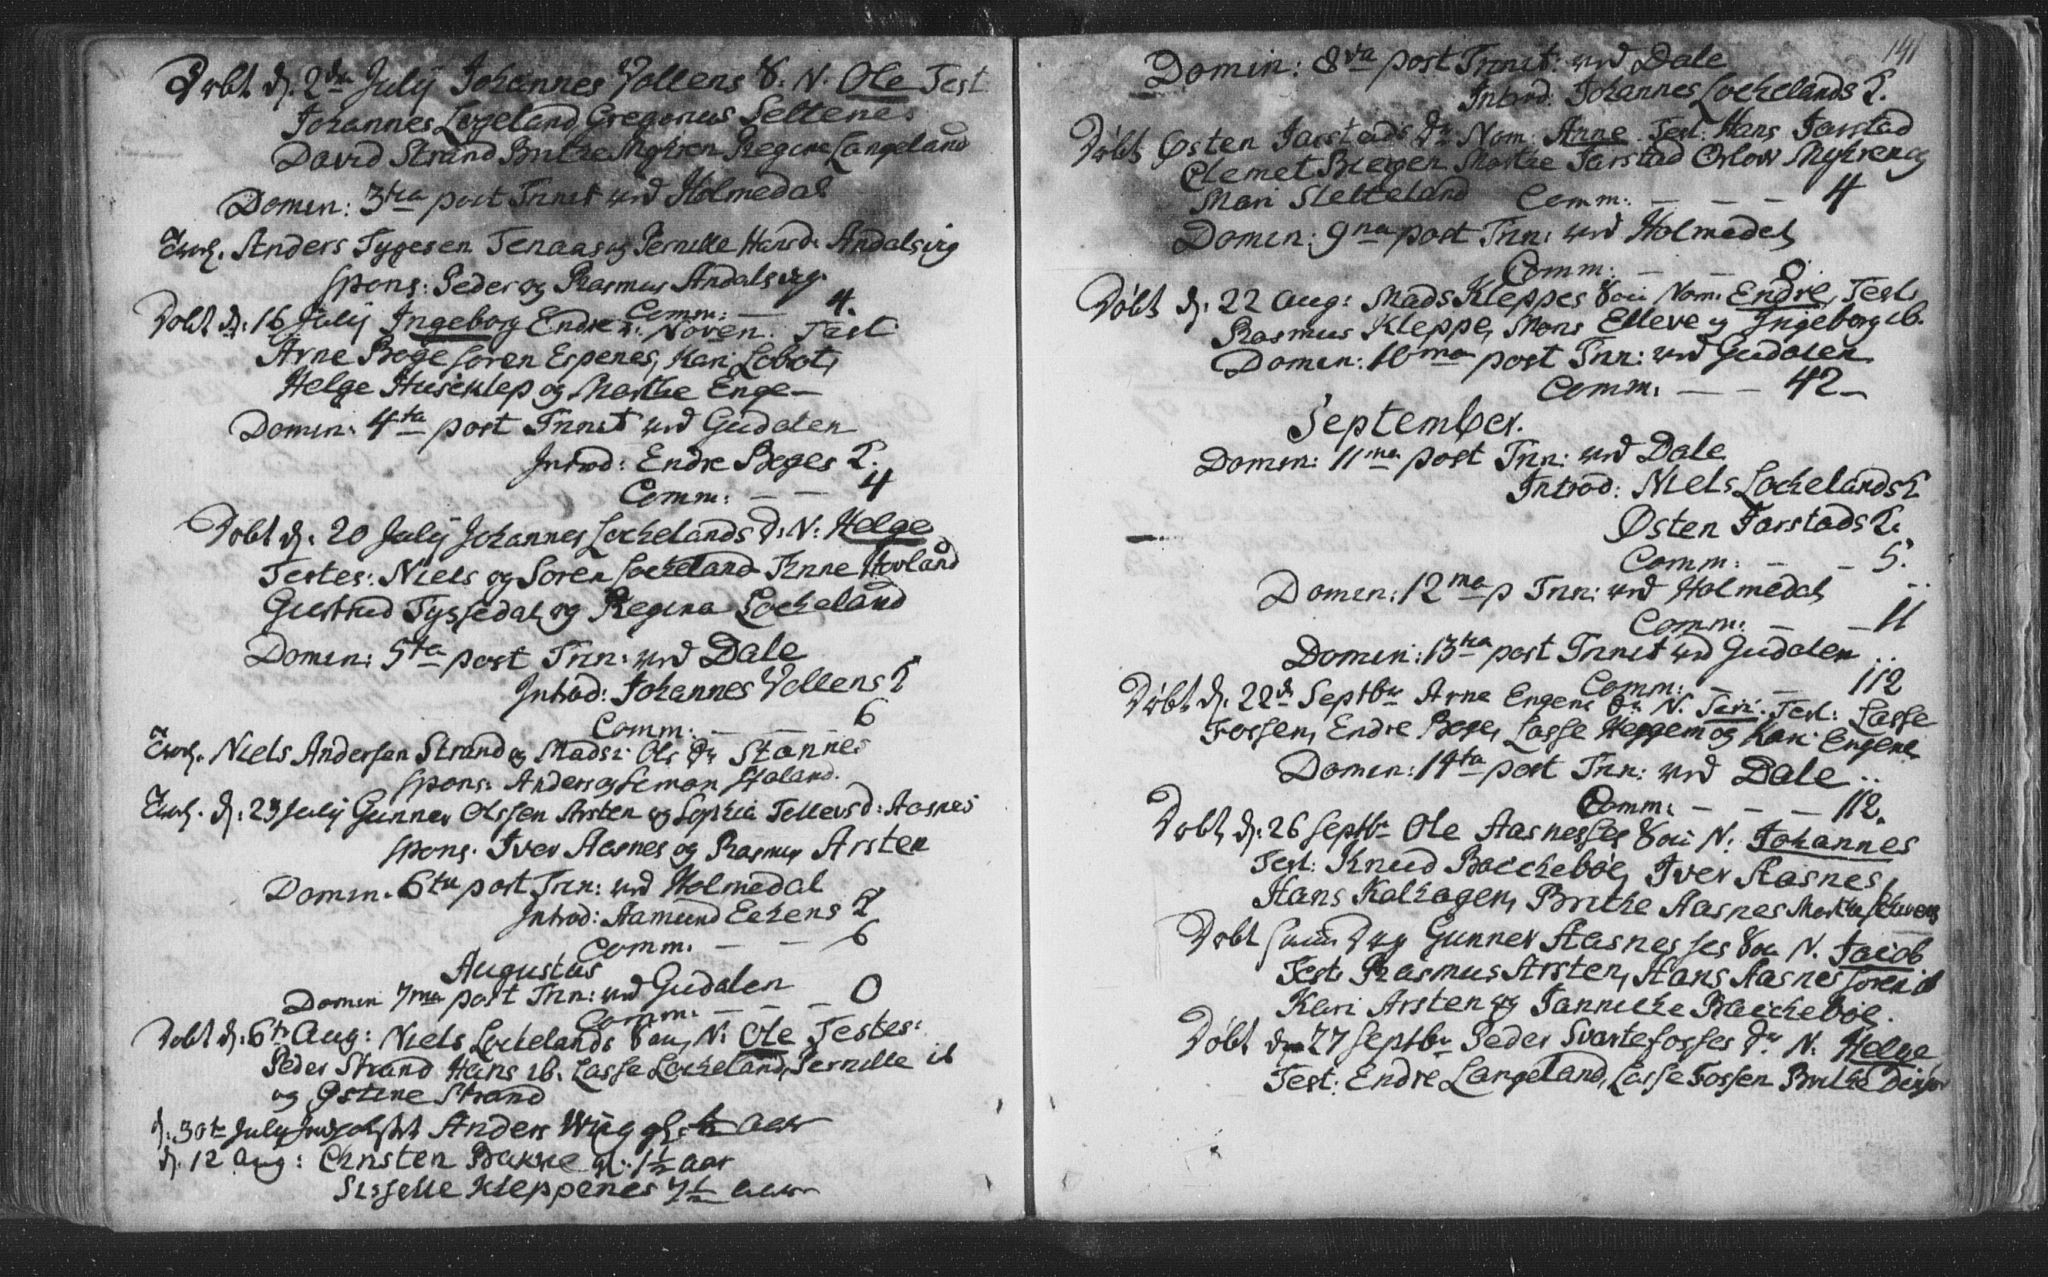 Døbt d. 2den Julij Johannes Vollens S. N. Ole Test
Johannes Løgeland, Gregorius Seltenes
David Strand Brithe Myhren Regine Langeland
Domin: 3tia post Trinit ved Holmedal
Anders Tygesen Tenaas og Pernille Hansd. Andalsvig
Spons: Peder og Rasmus Andalsvig.
Comm: — 4.
Dobt d: 16 Julij Ingeborg Endre Noven. Test
Arne Boge Soren Espenes, Kari
Helge Huseklep og Marthe Enge —
Domin: 4ta post Trinit ved Gudalen
Introd: Endre Beges K.
Comm: — — 4
Dobt d. 20 Julij Johannes Lochelands d: N: Helge
Testes: Niels og Soren Locheland Hovland
Giertrud Tyssedal og Regina Locheland
Domin: 5ta post Trin: ved Dale
Introd: Johannes Vollens K
Comm: — — 6
Niels Andersen Strand og Madsi Ols dr Stannes
Spons: Anders og Simon
d: 29 Julij Gunner Olssen Arsten og Sophia Tellevsd: Aasnes
Spons. Iver Aasnes og Rasmus Arsten
Domin. 6ta post Trin: ved Holmedal
Introd: Aamund Echens K
Comm. — — 6
Augustus
Domin 7ma post Trin: ved Gudalen
Comm: — — 0
Dobt d: 6te Aug: Niels Lochelands Sou, N: Ole Testes:
Peder Strand Hans ib. Lasse Locheland, Pernille ib
og Østine Strand
d: 30te Julij Anders Wiig gl: ½ aar
d. 12 Aug: Christen Bakke gl: 1½ aar
Sisselle Kleppenes 7½ aar
141
Domin: 8va post Trinit: ved Dale
Introd: Johannes Lochelands K.
Døbt Østen Jarstads dr Nom. Arne Test: Hans Jarstad
Clemet Biergen Marthe Jarstad Orlow Myhren og
Mari Sletteland Comm: — — — 4
Domin: 9na post Trin: ved Holmedal
Comm: — — 0.
Døbt d: 22 Aug: Mads Kleppes Sou Nom. Endre, Test.
Rasmus Kleppe, Mons Elleve og Ingeborg ib.
Domin: 10ma post Trin: ved Gudalen
Comm: — — 42 —
September.
Domin: 11ma post Trin: ved Dale
Introd: Niels Lochelands K
Østen Jarstads K.
Comm: — — 5.
Domin: 12ma p Trin: ved Holmedal
Comm: — — 11
Domin: 13tia post Trinit ved Gudalen
Comm: — — 112
Døbt d: 22d Septbr Arne Engens N. Test: Lasse
Fossen, Endre Boge, Lasse Heggem og Kari Engene
Domin: 14ta post Trin: ved Dale
Comm: — — — 112.
Dobt d: 26 Septbr Ole Aasnesses Sou N: Johannes
Test: Knud Bacheboe, Iver Aasnes,
Hans Kalhagen, Brithe Aasnes Marthe
Døbt Dag Gunner Aasnesses Sou N. Jacob
Test: Rasmus Arsten, Hans Aasnes Soren ib
Kari Arsten og Jannicke Baccheboe.
Døbt d 27 Septbr Peder Svartefosses dr N. Helge
Test: Endre Langeland, Lasse Fossen Brithe